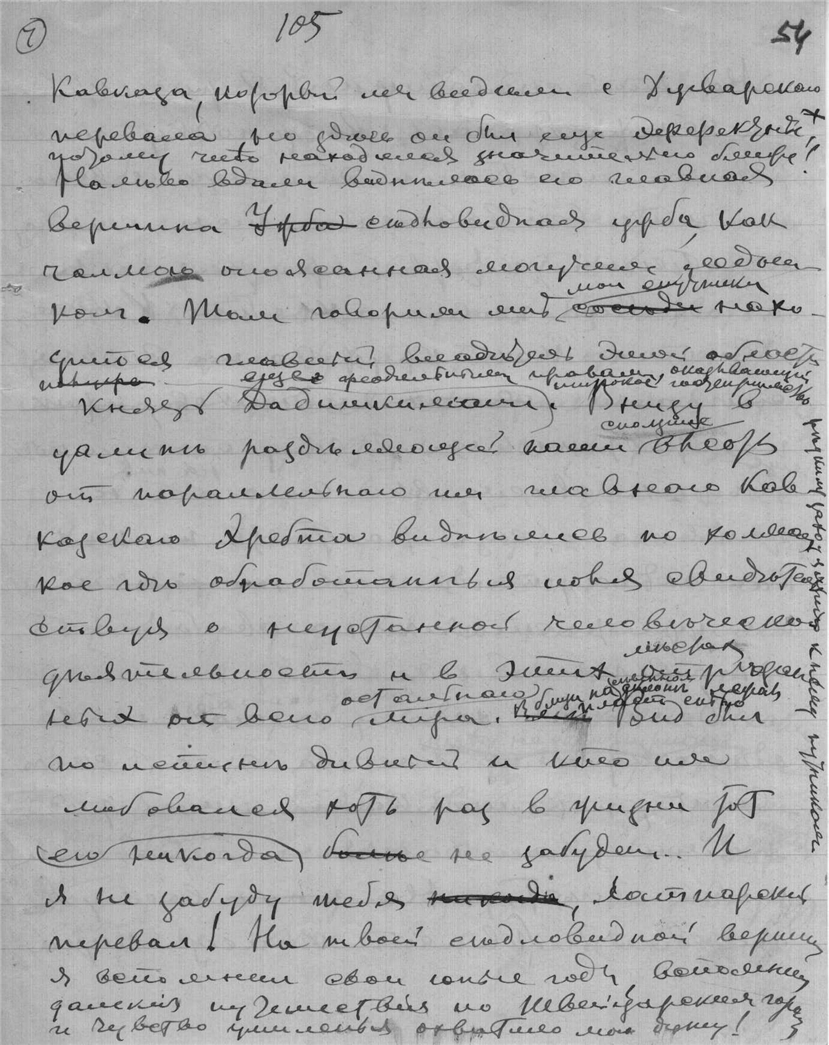 7
105
54
Кавказа, который мы видели с
перевала, но здѣсь он был еще
потому что находился значительно ближе!
Налѣво вдали виднѣлась его главная
вершина Ушба сѣдловидная ушба, как
чалмою опоясанная могучим ледни
ком. Там говорили мнѣ мои спутники нахо-
дится главный владѣтель этой области
еще с феодальными правами, оказывающий
широкое гостеприимство
рѣдким заходящим к нему путникам.
Князь Дадишкилиани. Внизу в
долинѣ раздѣляющей наши
от параллельнаго им главнаго Кав
казскаго Хребта виднѣлись по холмам
кое гдѣ обработанныя поля свидѣтель
ствуя о неустанной человѣческой
дѣятельности и в этих отрѣзан
ных от всего остального мира
мѣстах
Вблизи на склонѣ
Вид был
по истинѣ дивный и кто им
любовался хоть раз в жизни тот
его никогда больше не забудет.. И
я не забуду тебя никогда, Латпарский
перевал! На твоей сѣдловидной вершинѣ
я вспомнил свои юные годы, вспомнил
далекия путешествия по Швейцарским горам
и чувство умиленья охватило мою душу!